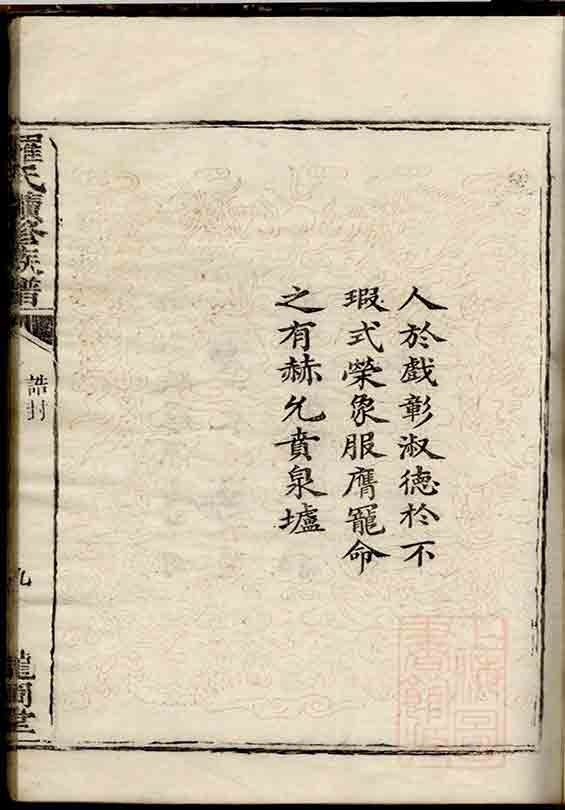 人於戲彰淑德於不
瑕式榮象服膺寵命
之有赫允賁泉壚
羅氏續修族譜
誥封
九